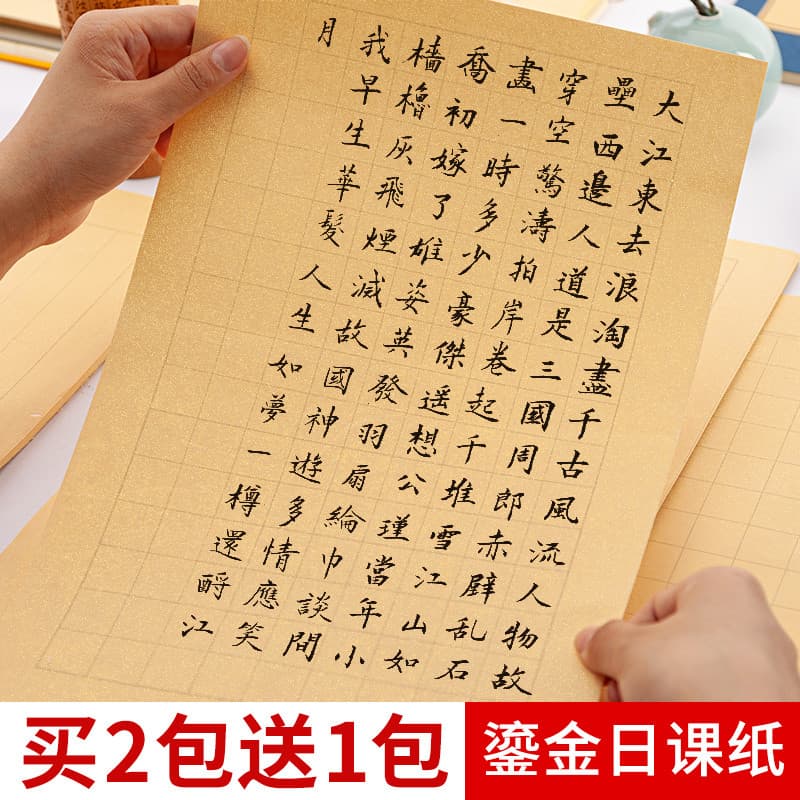 大江東去浪淘盡千古風流人物故
壘西邊人道是三國周郎赤壁乱石
穿空驚濤拍岸卷起千堆雪江山如
畫一時多少豪傑遥想公瑾當年小
喬初嫁了雄姿英發羽扇綸巾談間
檣櫓灰飛煙滅故國神遊多情應笑
我早生華髮人生如夢一樽還酹江
月
买2包送1包
鎏金日课纸